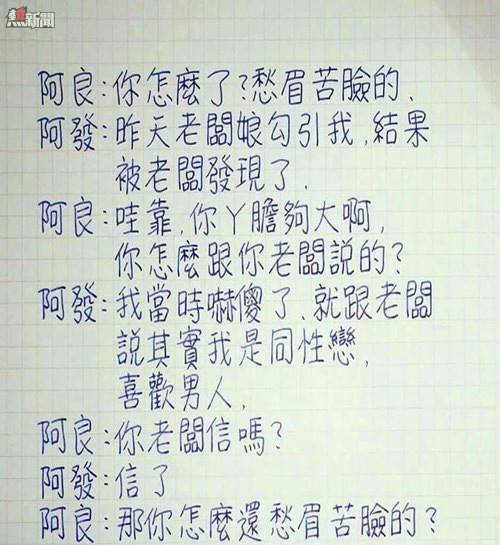 熱新聞
阿良:你怎麼了?愁眉苦臉的.
阿發:昨天老闆娘勾引我,結果
被老闆發現了.
阿良:哇靠,你丫膽夠大啊,
你怎麼跟你老闆說的?
阿發:我當時嚇傻了.就跟老闆
說其實我是同性戀,
喜歡男人.
阿良:你老闆信嗎?
阿發:信了
阿良:那你怎麼還愁眉苦臉的?